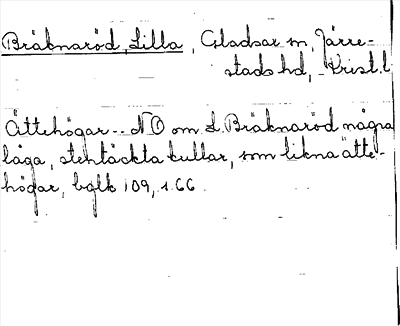 Bräknaröd, Lilla, Gladsax sn, Järre-
stads hd, Krist. l.
Ättehögar -- NO om L. Bräknaröd några
låga, stentäckta kullar, som likna ätte-
högar, bglk 109, s. 66.